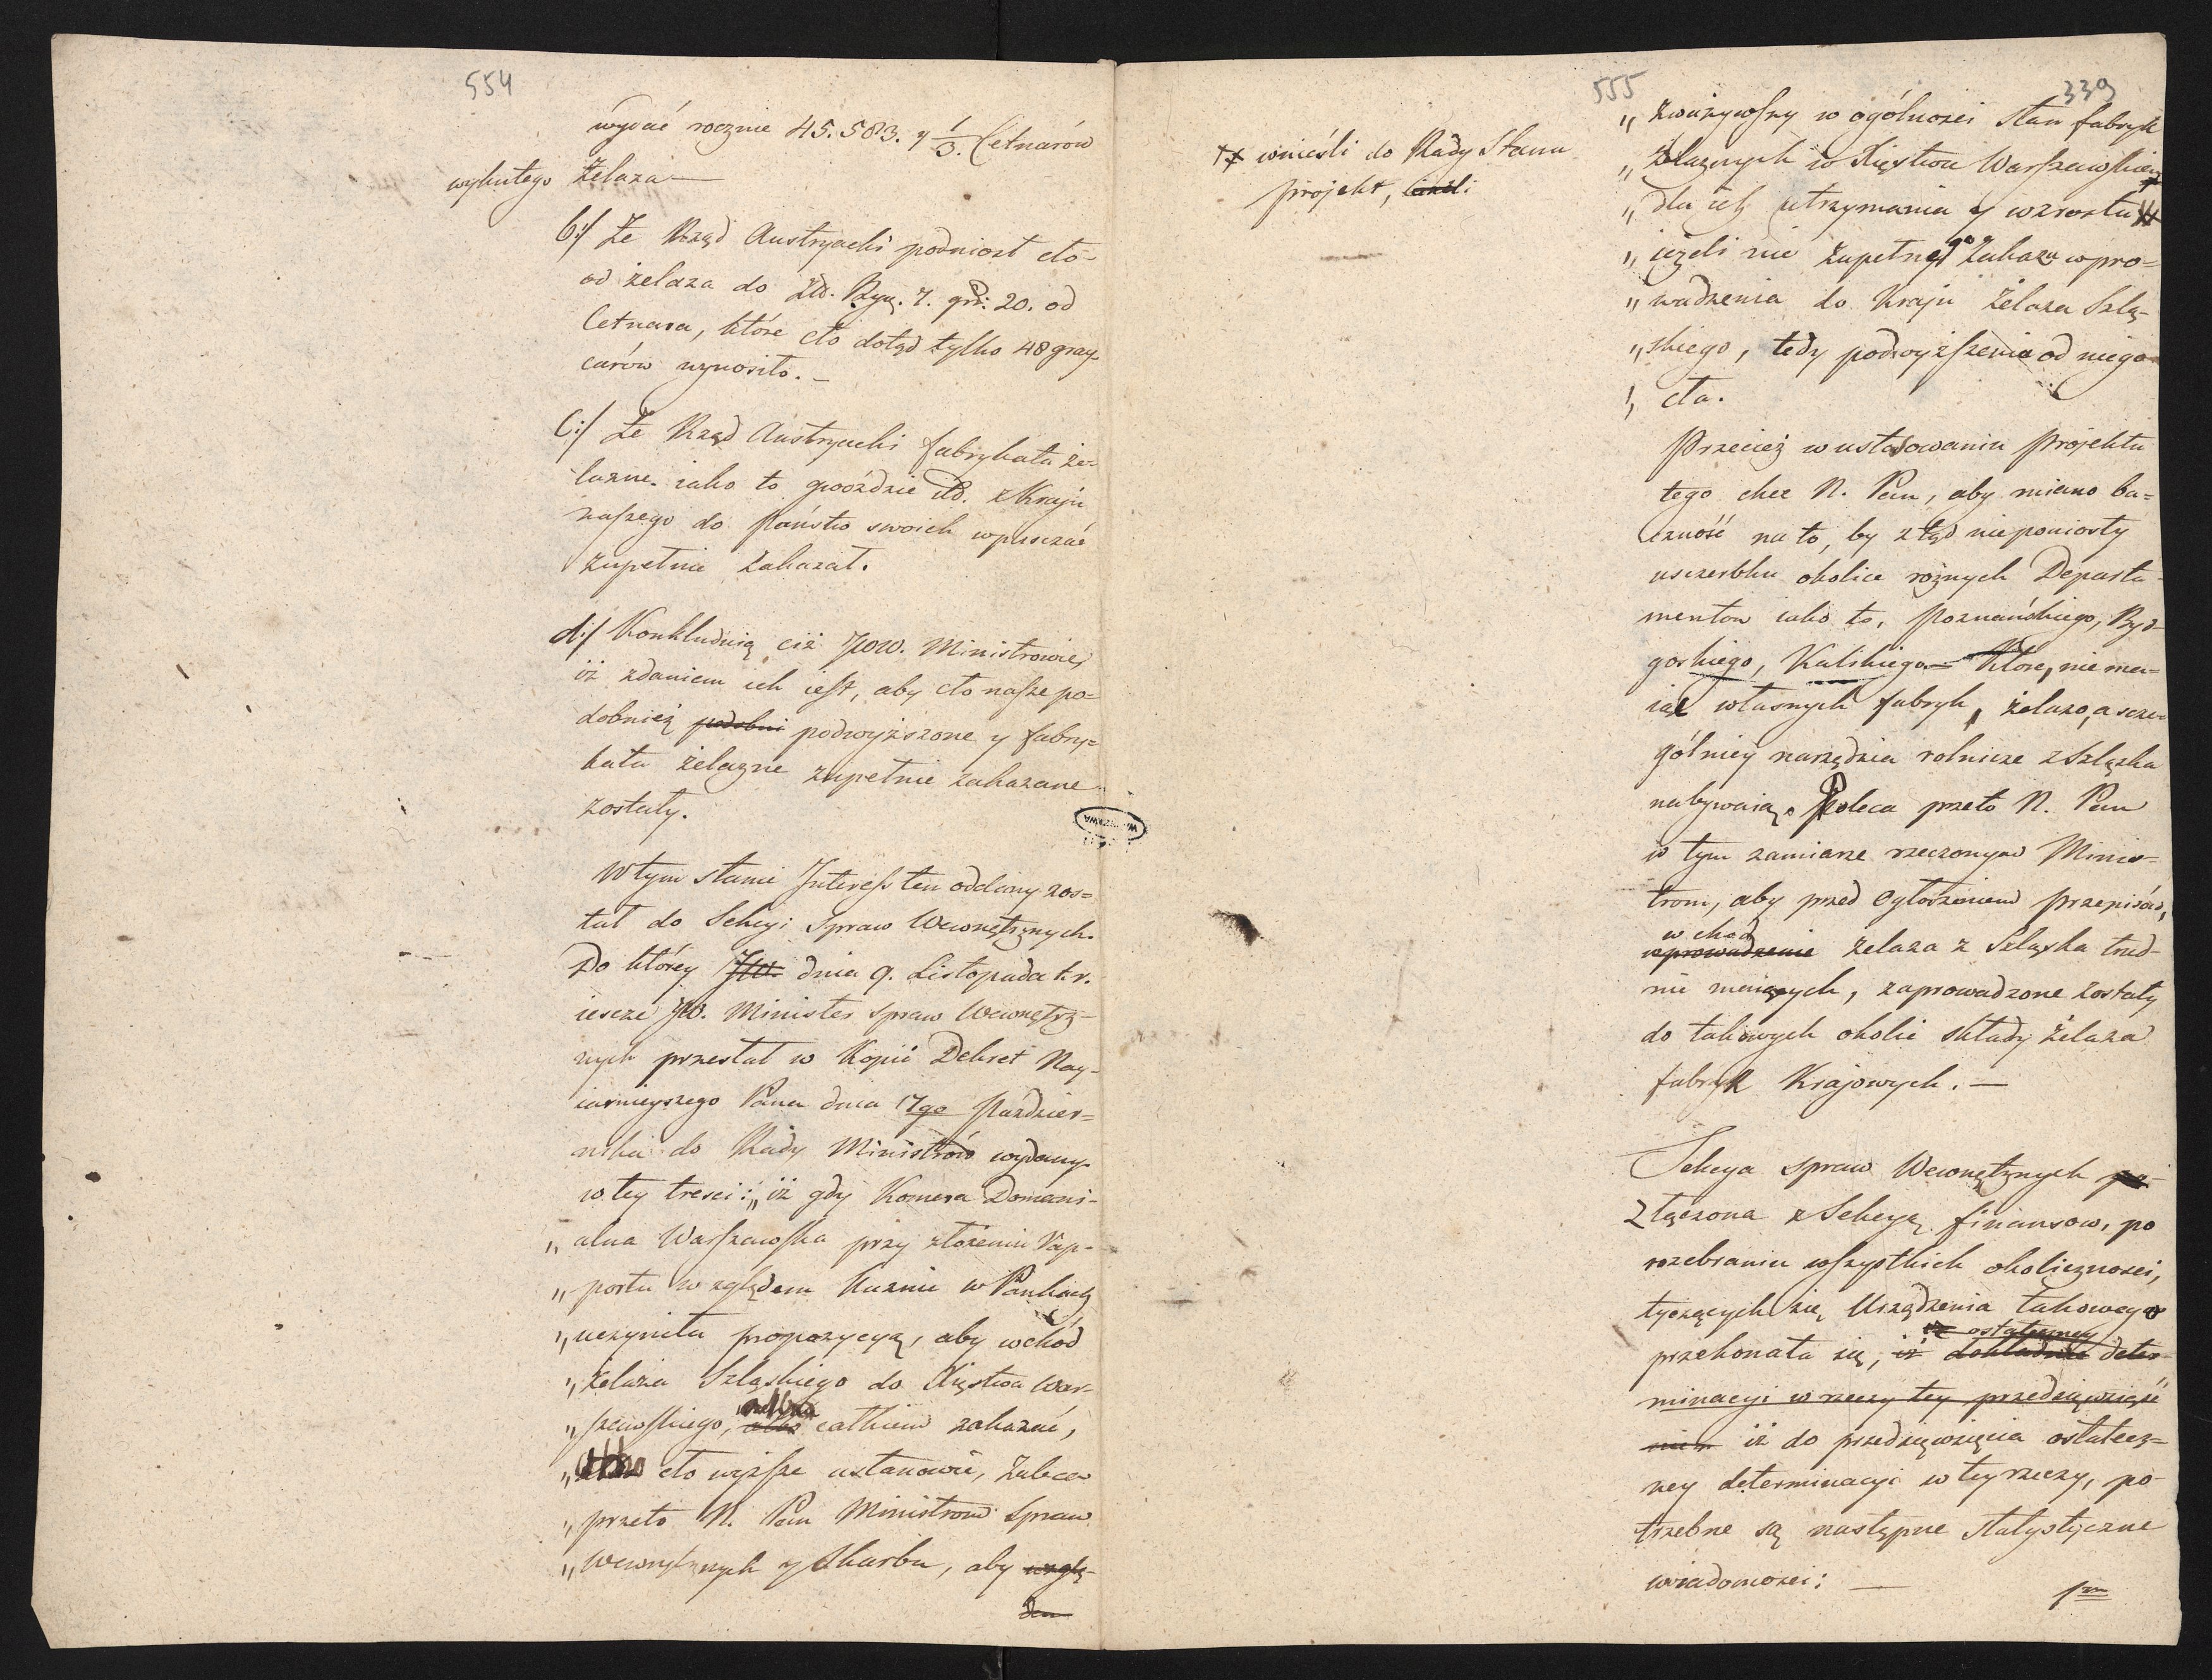 554
wydać rocznie 45.583. y 1/3. Cetnarów
wykutego żelaza —
b:/ Że Rząd Austryacki podniosł cło
od żelaza do Zł. Ryn. 7. gr: 20. od
Cetnara, które cło dotąd tylko 48 gray-
carów wynosiło. —
C:/ Że Rząd Austryacki fabrykata że-
lazne iako to gwoździe itd. z Kraju
naszego do Państw swoich wpuszczać
zupełnie zakazał.
d:/ Konkludują ciż JWW. Ministrowie,
iż zdaniem ich iest, aby cło nasze po-
dobnież podobni podwyższone y fabry-
kata żelazne zupełnie zakazane
zostały.
W tym stanie Interess ten oddany zos-
tał do Sekcyi Spraw Wewnętrznych.
Do którey JW. dnia 9. Listopada r. b.
ieszcze JW. Minister Spraw Wewnętrz-
nych przesłał w Kopii Dekret Nay-
iaśnieyszego Pana dnia 17go Paździer-
nika do Rady Ministrów wydany
w tey tresci: „iż gdy Komora Domani-
„alna Warszawska przy złożeniu Rap-
„portu względem Kuźnic w Pankach
„uczyniła propozycyą, aby wchód
„żelaza Szląskiego do Xięstwa War-
„szawskiego, albo całkiem zakazać,
„albo cło wyższe ustanowić, Zaleca
„przeto N. Pan Ministrom Spraw
„Wewnętrznych y Skarbu, aby wzglę-
dem
WARSZAWA
555
339
wnieśli do Rady Stanu
projekt,
„zważywszy w ogólności stan fabryk
„żelaznych w Xięstwie Warszawskiem
„dla ich utrzymania y wzrostu
„ieżeli nie zupełnego Zakazu wpro-
„wadzenia do Kraju Żelaza Szlą-
„skiego, tedy podwyższenia od niego
„cła.
Przecież w ustosowaniu projektu
tego chce N. Pan, aby miano ba-
czność na to, by z tąd nie poniosły
uszczerbku okolice rożnych Departa-
mentow iako to, Poznańskiego, Byd-
goskiego, Kaliskiego — Ktore, nie ma-
iąc własnych fabryk, żelazo, a szcze-
gólniey narzędzia rolnicze z Szląska
nabywaią. Poleca przeto N. Pan
w tym zamiarze rzeczonym Minis-
trom, aby przed Ogłoszeniem przepisów,
wchod
wprowadzenie żelaza z Szląska trud-
nić maiących, zaprowadzone zostały
do takowych okolic składy żelaza
fabryk Krajowych. —
Sekcya Spraw Wewnętrznych po-
złączona z Sekcyą finansow, po
rozebraniu wszystkich okoliczności,
tyczących się Urządzenia takowego
iż ostateczney
przekonała się, iż dokładnie deter-
minacyi w rzeczy tey przedsięwziąść
nie iż do przedsięwzięcia ostatecz-
ney determinacyi w tey rzeczy, po-
trzebne są następne Statystyczne
wiadomosci: —
1mo